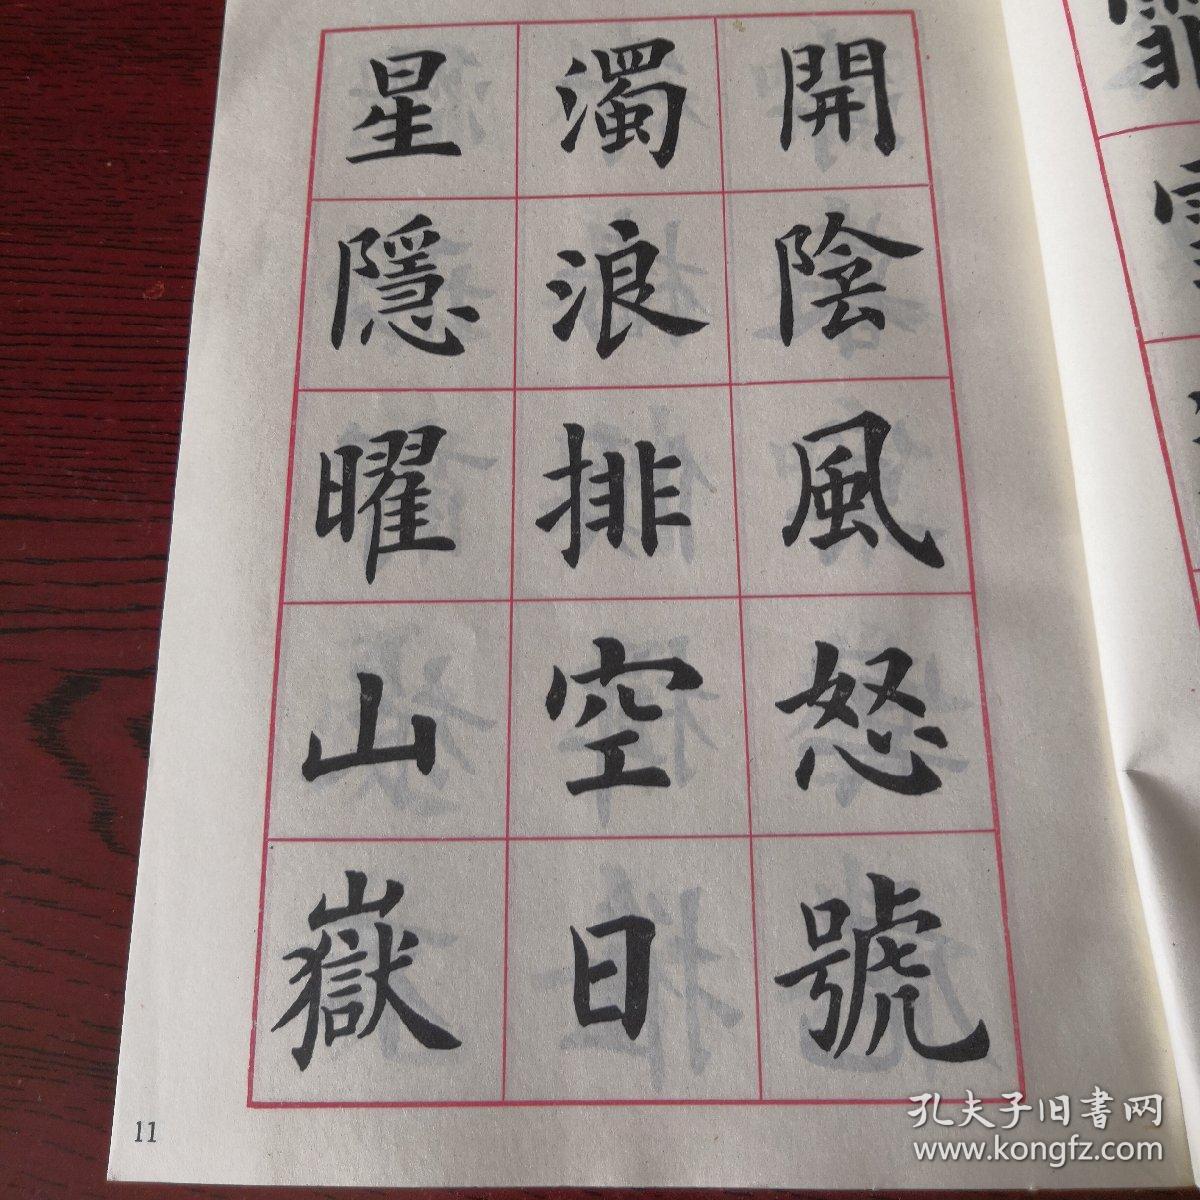 開陰風怒號
濁浪排空日
星隱曜山嶽
11
孔夫子旧書网
www.kongfz.com